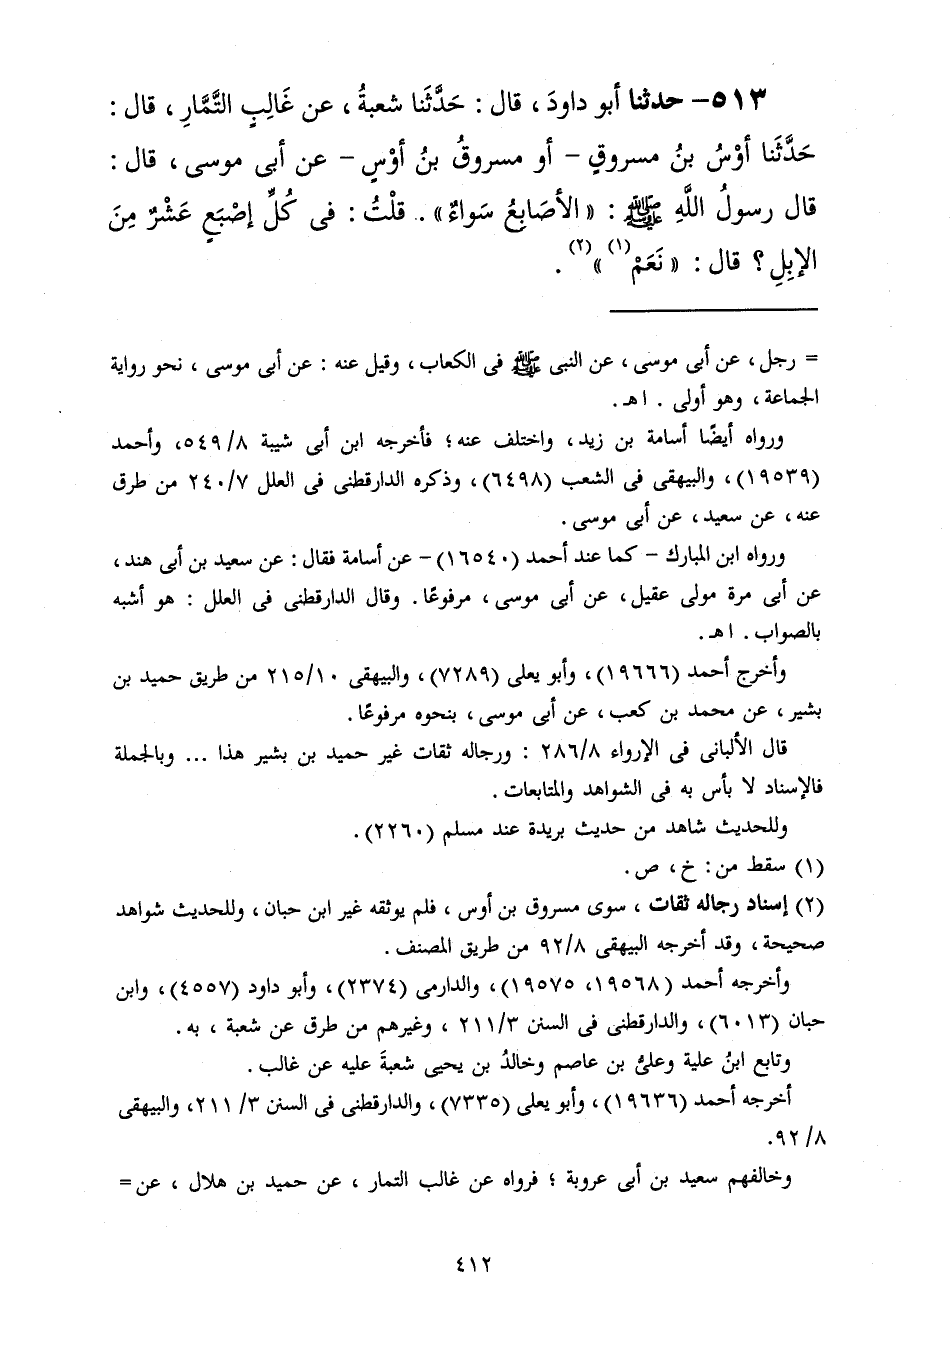 ٥١٣- حدثنا أبو داودَ ، قال : حَدَّثَنا شعبةُ ، عن غَالِبٍ التَّمَّارِ ، قال :
حَدَّثَنا أوْسُ بنُ مسروقٍ - أو مسروقُ بنُ أوْسٍ - عن أبى موسى ، قال :
قال رسولُ اللَّهِ ﷺ : « الأصَابِعُ سَواءٌ» . قلْتُ : فى كُلِّ إصْبَعٍ عَشْرٌ مِنَ
الإبِلِ ؟ قال : « نَعَمْ(١) »(٢) .
= رجل ، عن أبى موسى ، عن النبى ﷺ فى الكعاب ، وقيل عنه : عن أبى موسى ، نحو رواية
الجماعة ، وهو أولى . اهـ .
ورواه أيضًا أسامة بن زيد، واختلف عنه؛ فأخرجه ابن أبى شيبة ٥٤٩/٨، وأحمد
(١٩٥٣٩)، والبيهقى فى الشعب (٦٤٩٨)، وذكره الدارقطنى فى العلل ٢٤٠/٧ من طرق
عنه ، عن سعيد ، عن أبى موسى .
ورواه ابن المبارك - كما عند أحمد (١٦٥٤٠) - عن أسامة فقال : عن سعيد بن أبى هند ،
عن أبى مرة مولى عقيل ، عن أبى موسى ، مرفوعًا . وقال الدارقطنى فى العلل : هو أشبه
بالصواب . اهـ .
وأخرج أحمد (١٩٦٦٦)، وأبو يعلى (٧٢٨٩)، والبيهقى ٢١٥/١٠ من طريق حميد بن
بشير ، عن محمد بن كعب ، عن أبى موسى ، بنحوه مرفوعًا .
قال الألبانى فى الإرواء ٢٨٦/٨ : ورجاله ثقات غير حميد بن بشير هذا ... وبالجملة
فالإسناد لا بأس به فى الشواهد والمتابعات .
وللحديث شاهد من حديث بريدة عند مسلم (٢٢٦٠).
(١) سقط من : خ ، ص .
(٢) إسناد رجاله ثقات ، سوى مسروق بن أوس ، فلم يوثقه غير ابن حبان ، وللحديث شواهد
صحيحة ، وقد أخرجه البيهقى ٩٢/٨ من طريق المصنف .
وأخرجه أحمد (١٩٥٦٨، ١٩٥٧٥)، والدارمى (٢٣٧٤)، وأبو داود (٤٥٥٧)، وابن
حبان (٦٠١٣)، والدارقطنى فى السنن ٢١١/٣ ، وغيرهم من طرق عن شعبة ، به .
وتابع ابنُ علية وعلىُّ بن عاصم وخالدُ بن يحيى شعبةَ عليه عن غالب .
أخرجه أحمد (١٩٦٣٦)، وأبو يعلى (٧٣٣٥)، والدارقطنى فى السنن ٣/ ٢١١، والبيهقى
٨/ ٩٢.
وخالفهم سعيد بن أبى عروبة ؛ فرواه عن غالب التمار ، عن حميد بن هلال ، عن =
٤١٢